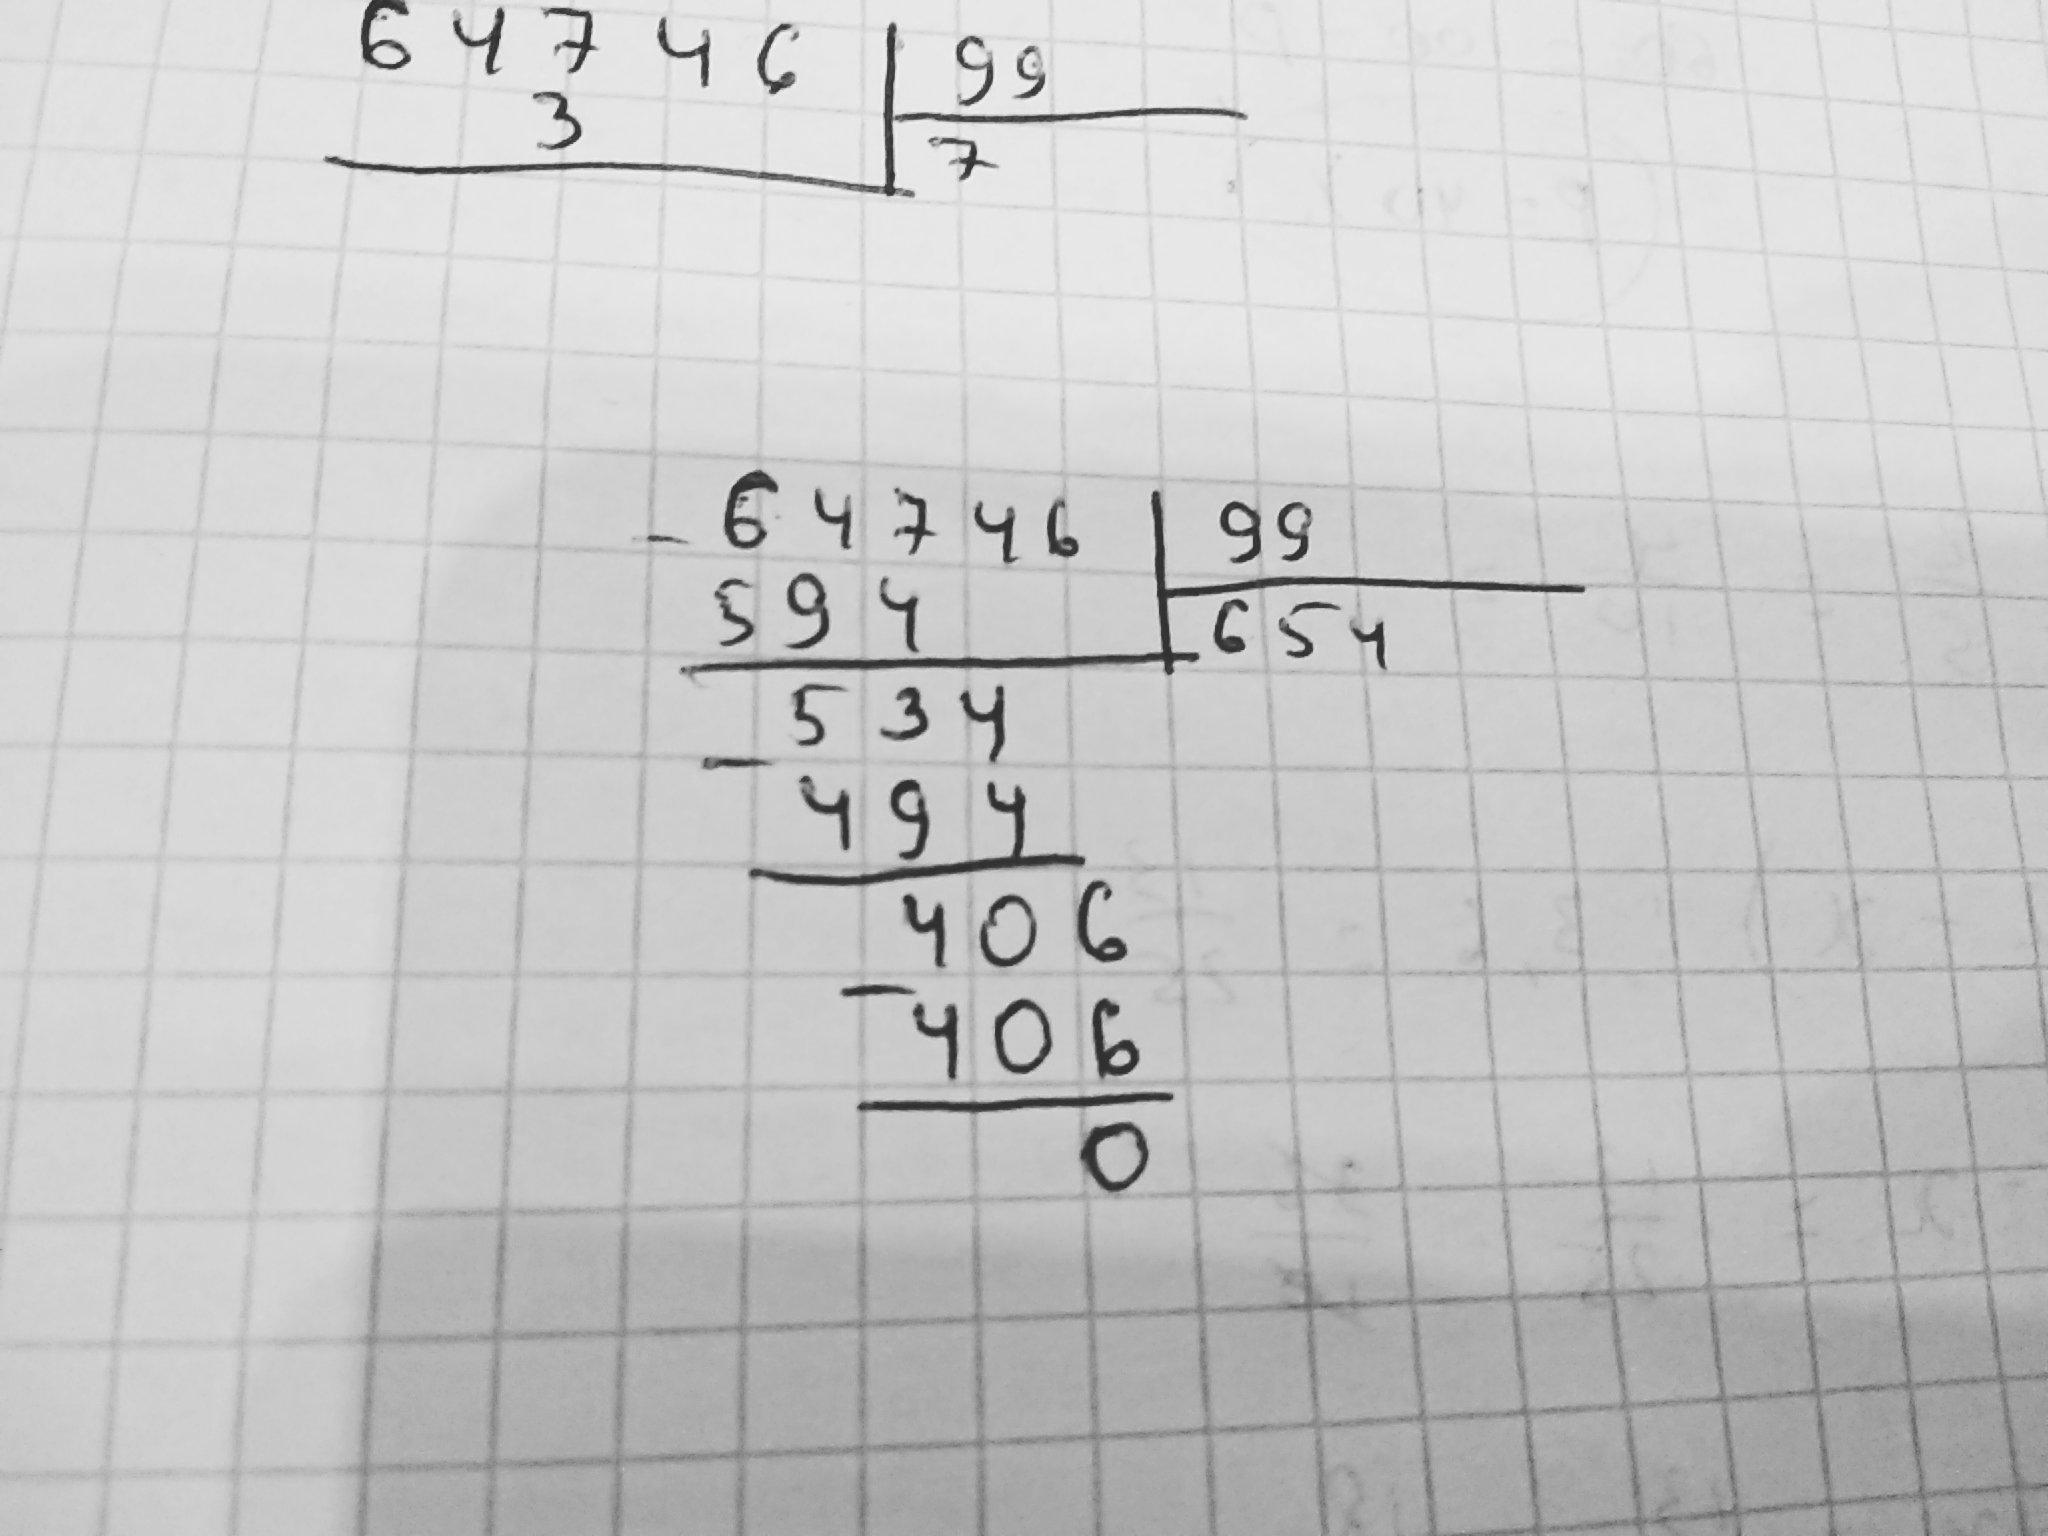 64746 99
3 7
- 64746 99
594 654
534
- 494
406
- 406
0